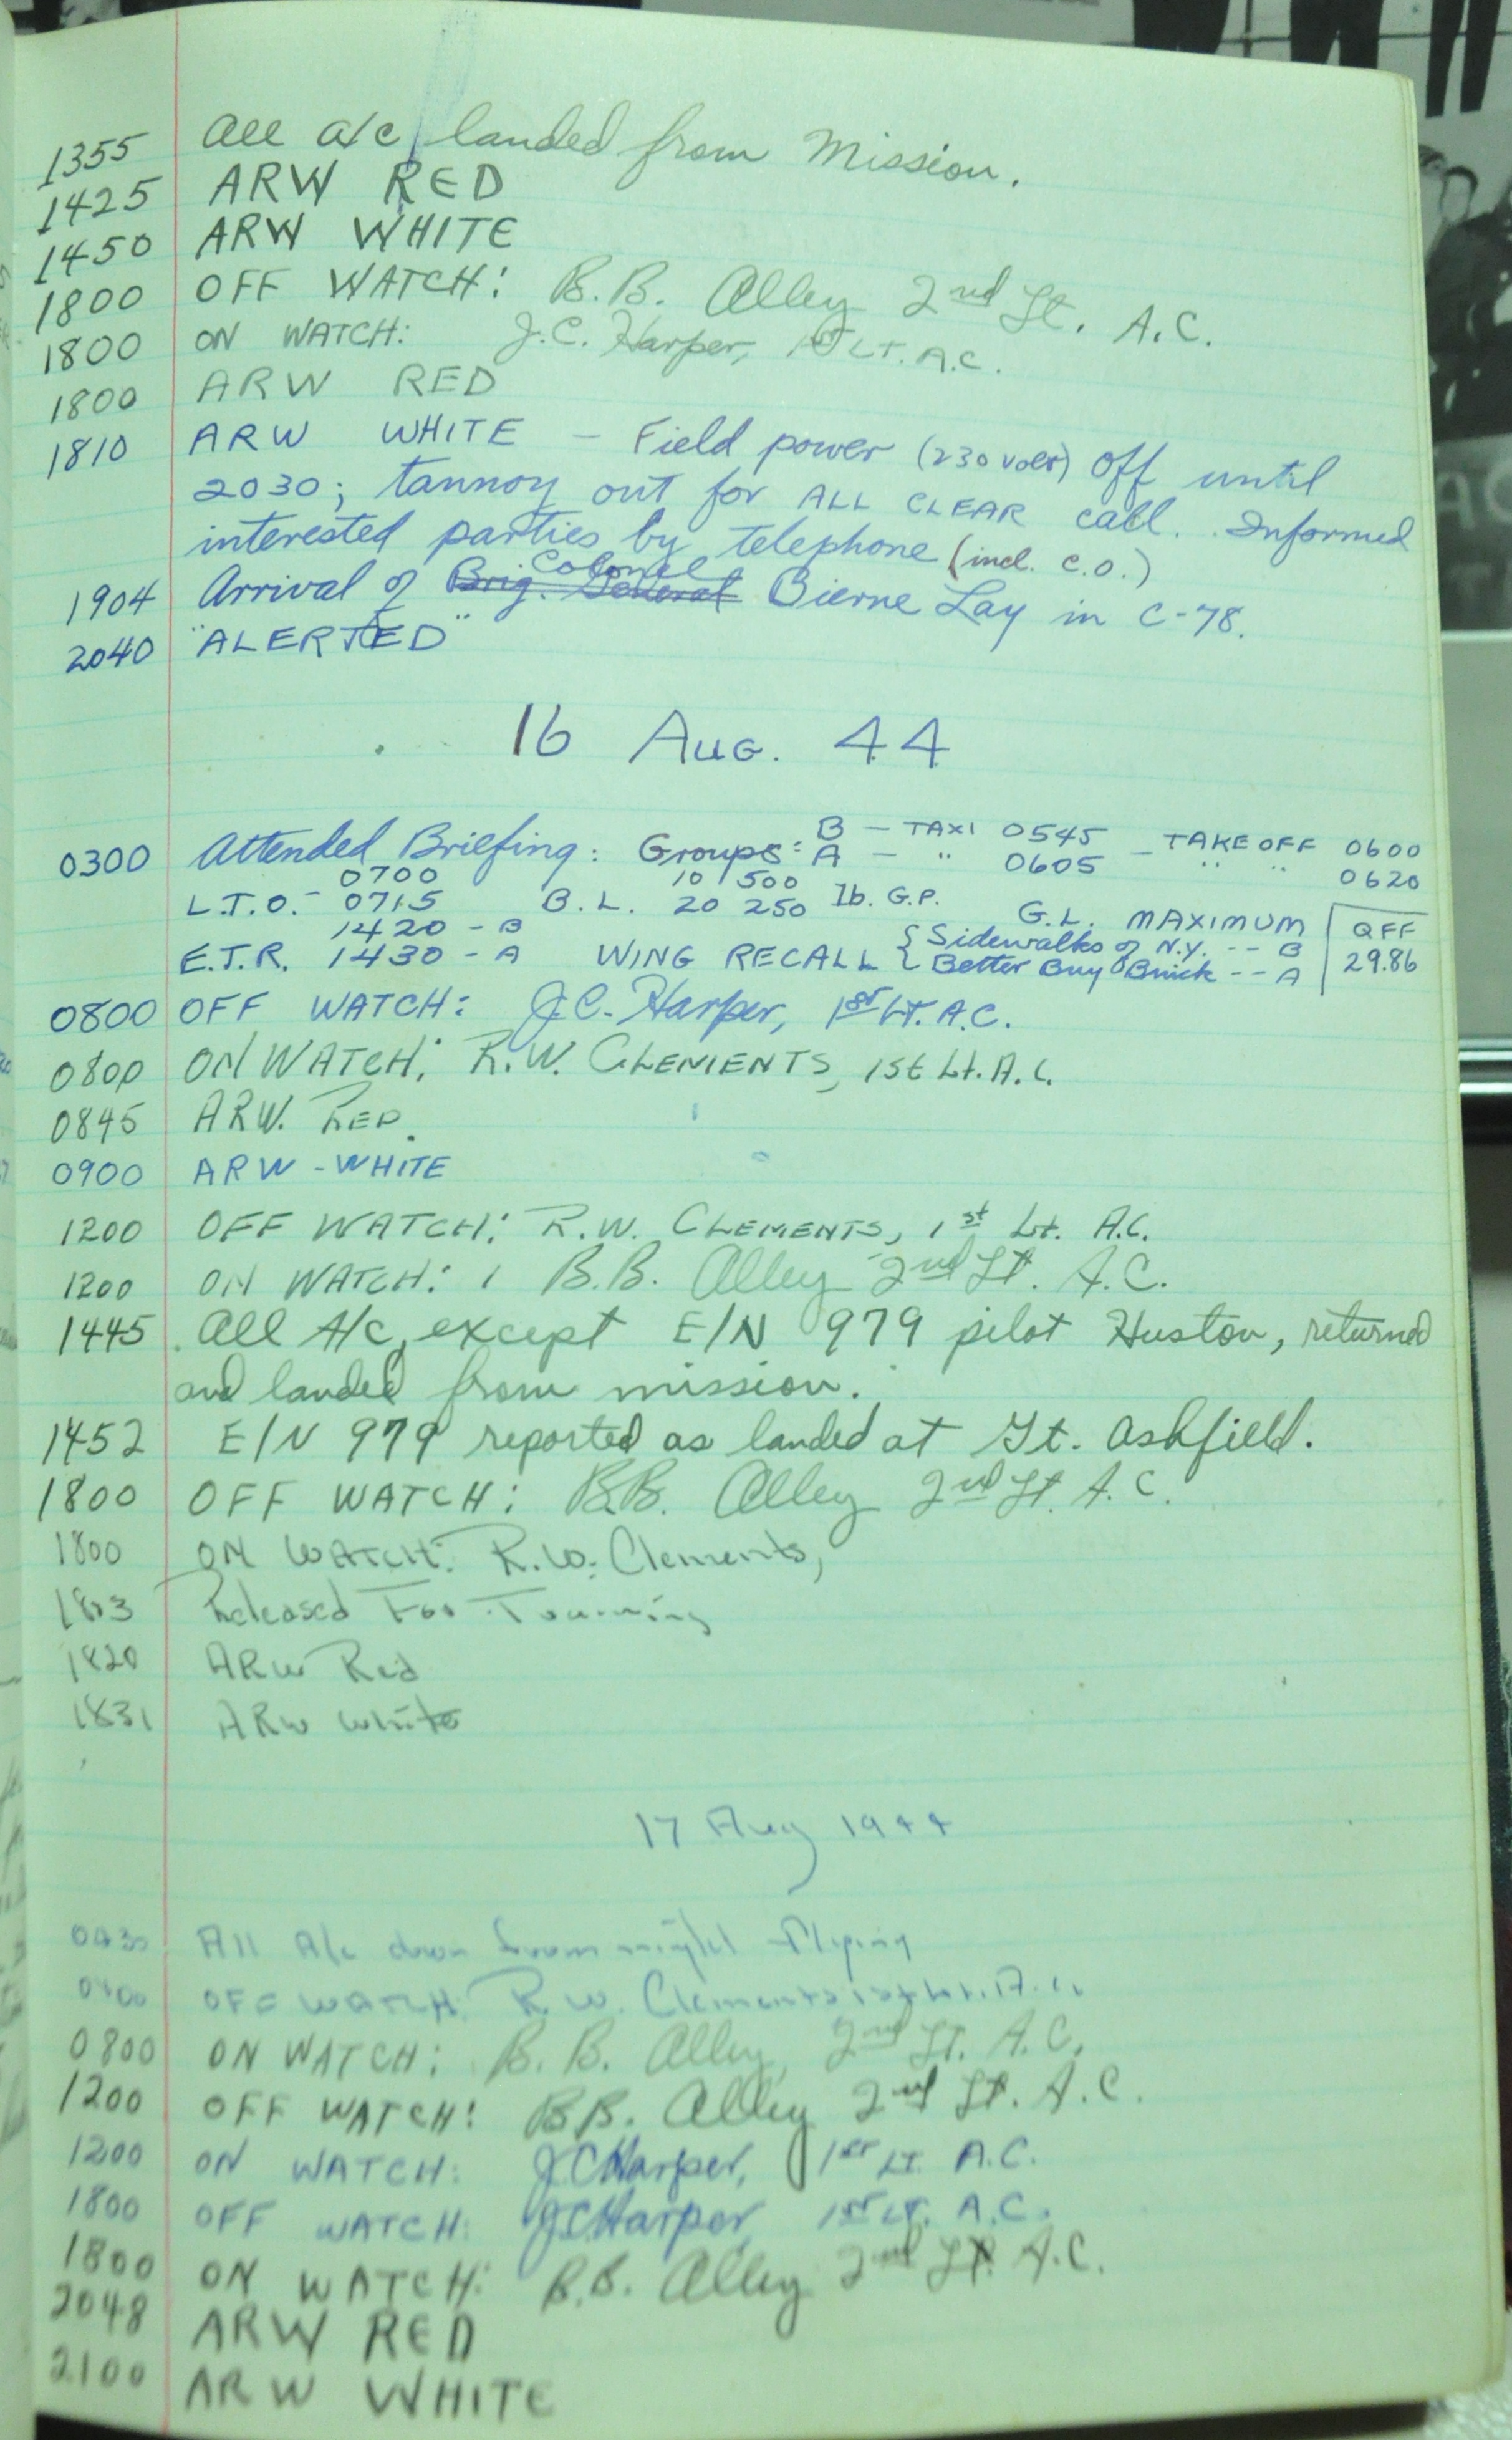 1355 All a/c landed from Mission.
1425 ARW RED
1450 ARW WHITE
1800 OFF WATCH: B.B. Alley 2nd Lt. A.C.
1800 ON WATCH: J.C. Harper, 1st LT. A.C.
1800 ARW RED
1810 ARW WHITE — Field power (230 volt) off until
2030; tannoy out for ALL CLEAR call. Informed
interested parties by telephone (incl. C.O.)
Colonel
1904 Arrival of Brig. General Bierne Lay in C-78.
2040 "ALERTED"
16 AUG. 44
B — TAXI 0545 — TAKE OFF 0600
0300 Attended Briefing: Groups: A — " 0605 " " 0620
0700 10 500
L.T.O. - 0715 B.L. 20 250 lb. G.P. G.L. MAXIMUM QFF
1420 - B { Sidewalks of N.Y. -- B 29.86
E.T.R. 1430 - A WING RECALL { Better Buy Buick -- A
0800 OFF WATCH: J.C. Harper, 1st Lt. A.C.
0800 ON WATCH: R.W. CLEMENTS, 1st Lt. A.C.
0845 ARW. RED.
0900 ARW - WHITE
1200 OFF WATCH: R.W. CLEMENTS, 1st Lt. A.C.
1200 ON WATCH: B.B. Alley 2nd Lt. A.C.
1445 All A/c, except E/N 979 pilot Huston, returned
and landed from mission.
1452 E/N 979 reported as landed at Gt. Ashfield.
1800 OFF WATCH: B.B. Alley 2nd Lt. A.C.
1800 ON WATCH: R.W. Clements,
Released For
1820 ARW Red
1831 ARW White
17 Aug 1944
All A/c down from night Flying
OFF WATCH: R.W. Clements 1st Lt. A.C.
0800 ON WATCH: B.B. Alley, 2nd Lt. A.C.
1200 OFF WATCH: B.B. Alley 2nd Lt. A.C.
1200 ON WATCH: J.C. Harper, 1st Lt. A.C.
1800 OFF WATCH: J.C. Harper 1st LT. A.C.
1800 ON WATCH: B.B. Alley 2nd Lt. A.C.
2048 ARW RED
2100 ARW WHITE